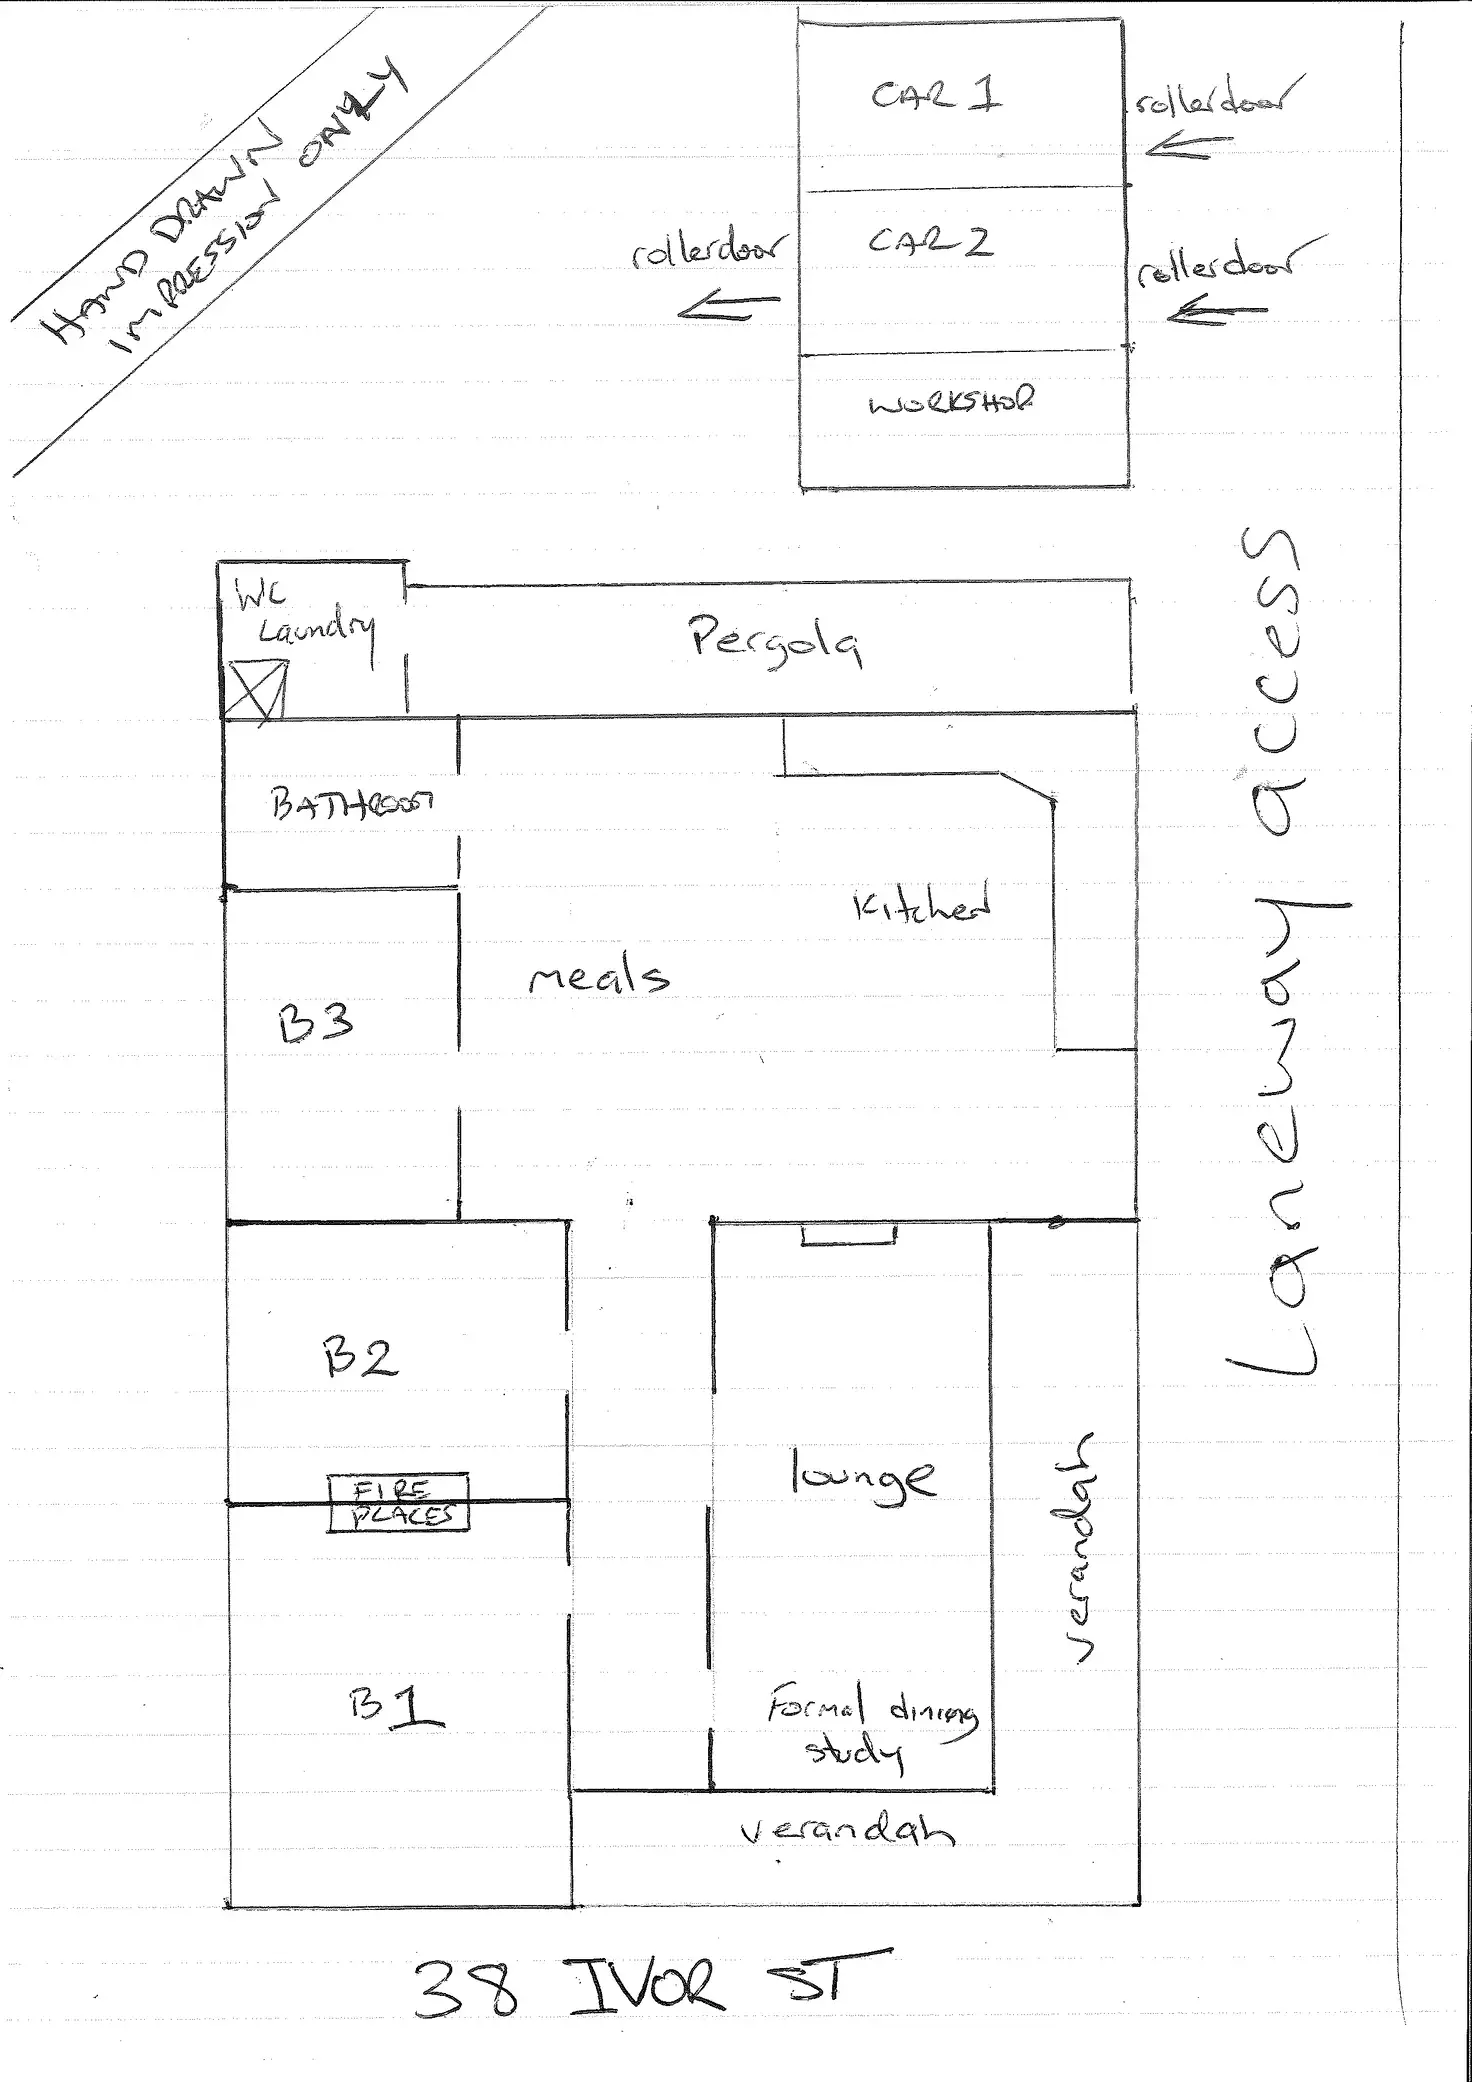 HAND DRAWN
IMPRESSION ONLY
CAR 1
rollerdoor
rollerdoor
CAR 2
rollerdoor
WORKSHOP
WC
Laundry
Pergola
BATHROOM
Kitchen
meals
B3
Laneway access
B2
FIRE
PLACES
lounge
verandah
B1
Formal dining
study
verandah
38 IVOR ST